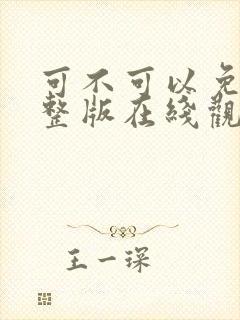 可不可以免
整版在线觀
王一琛